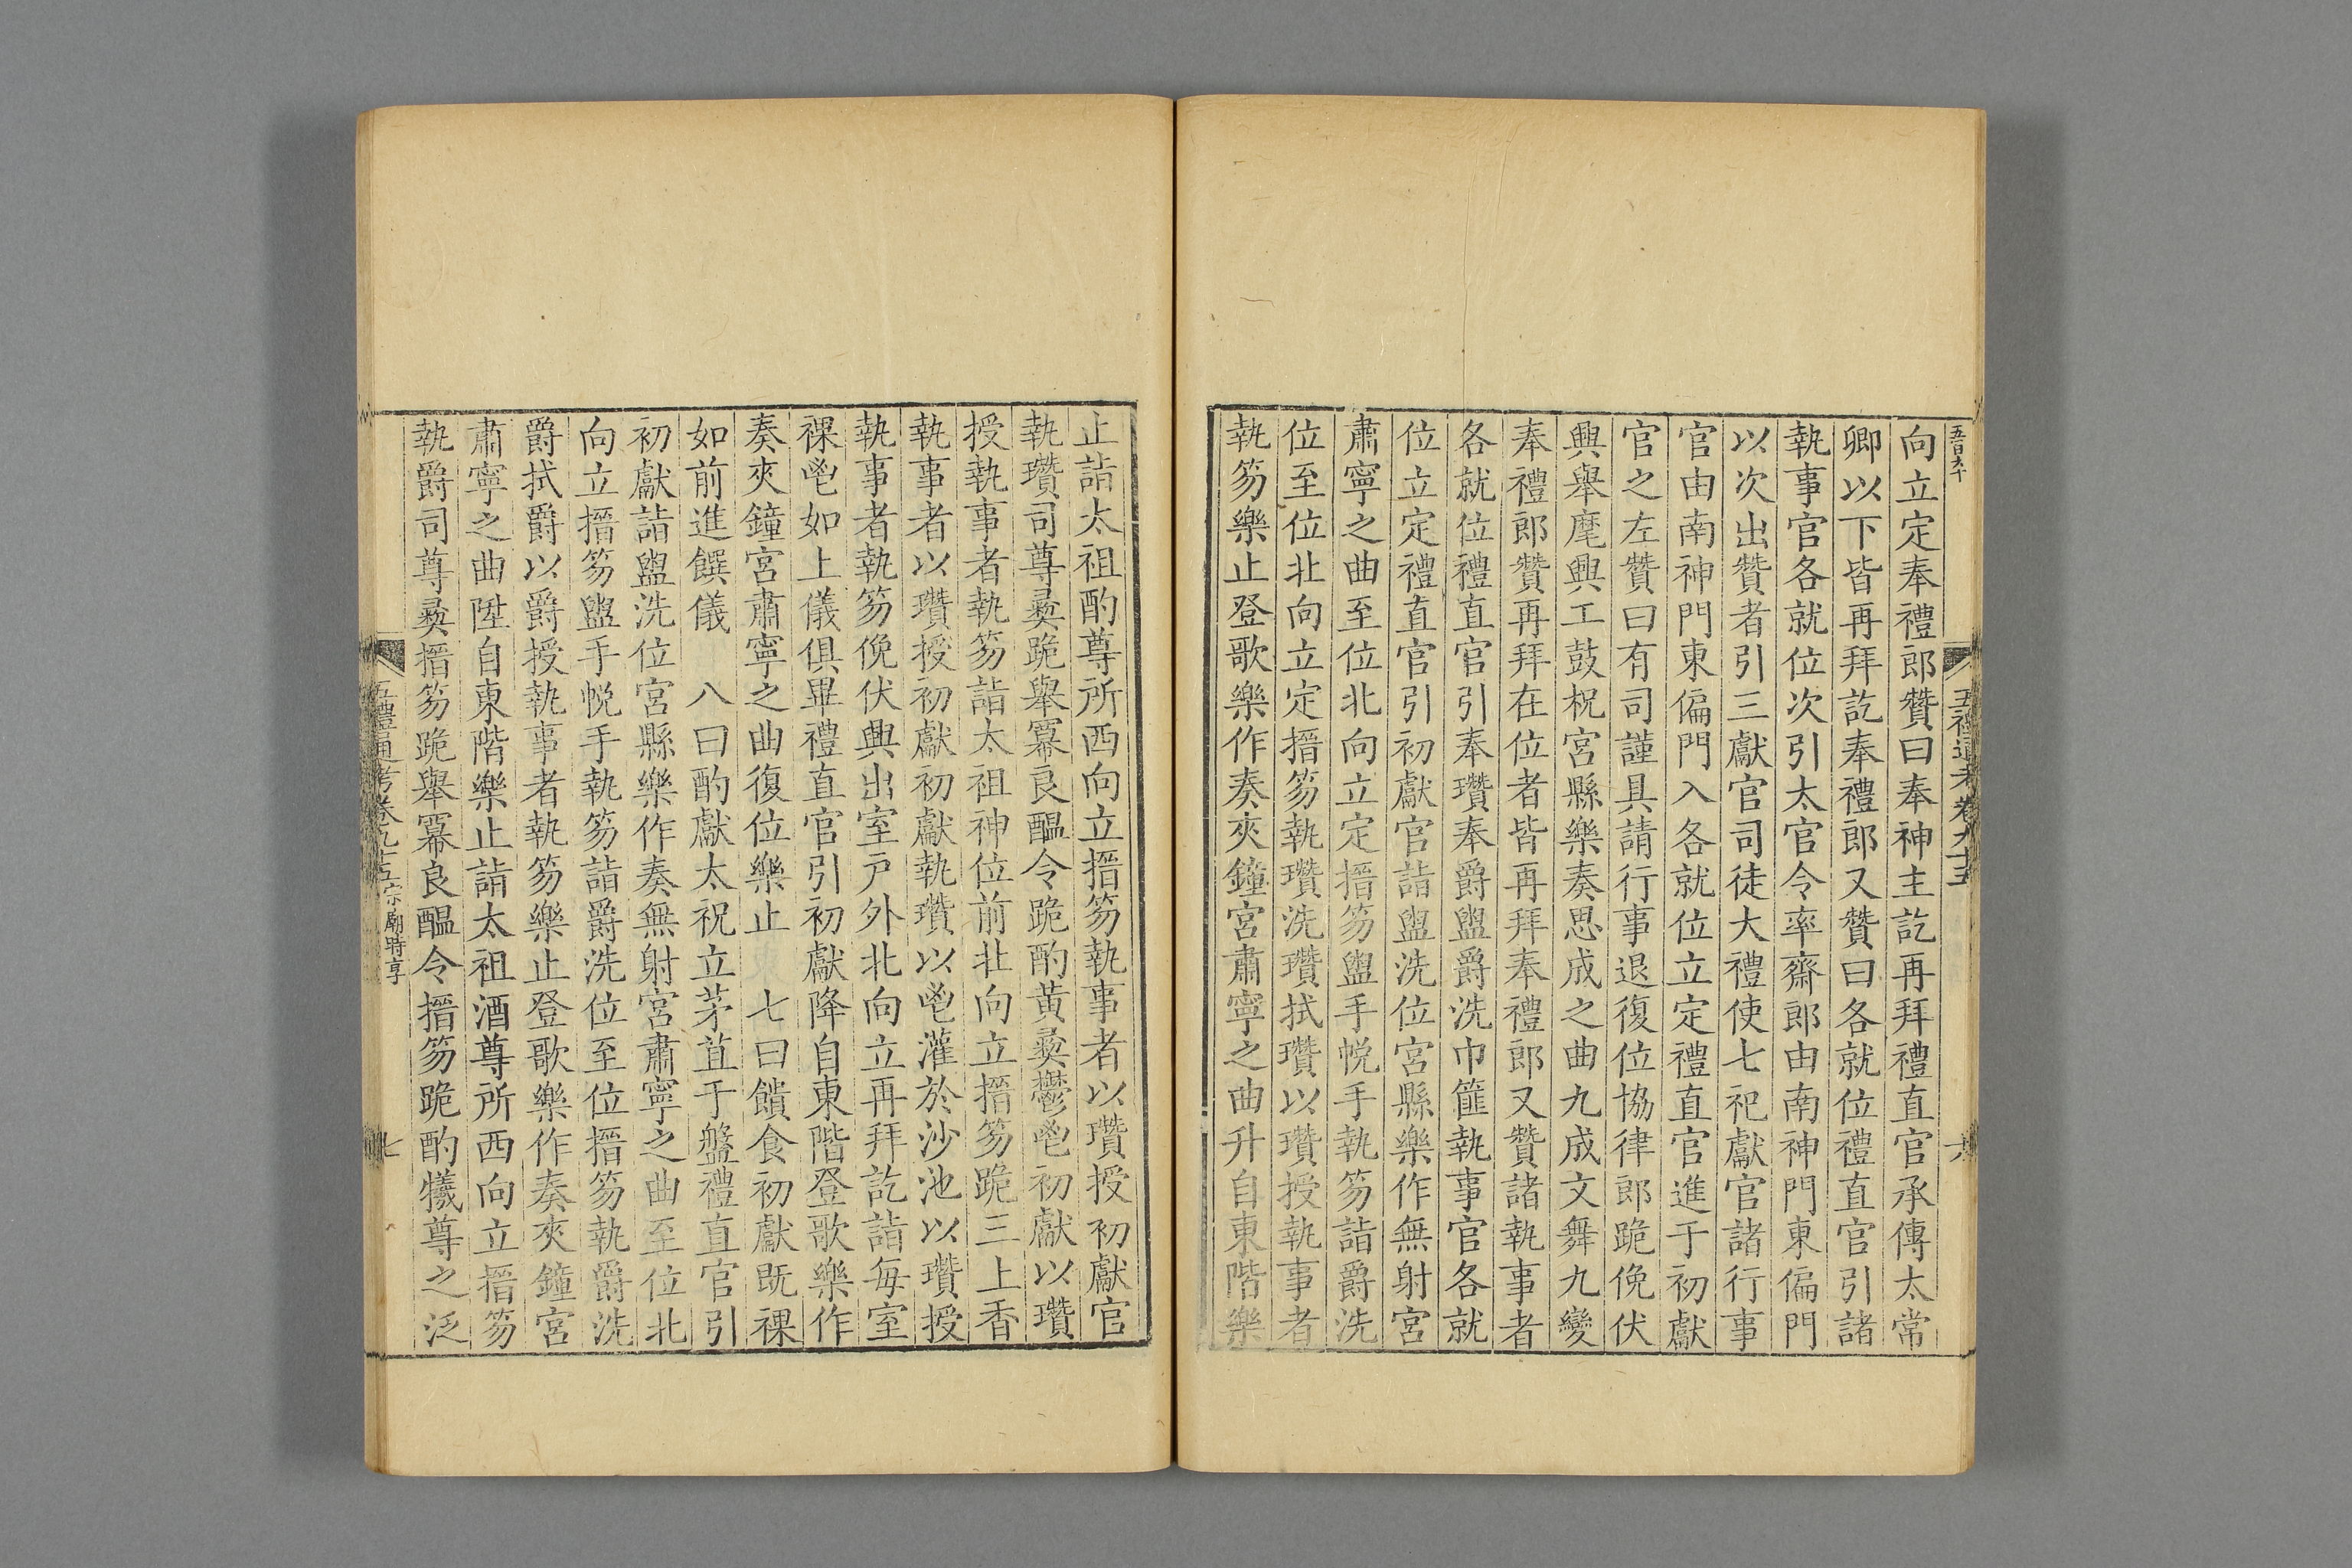 五百六十
五禮通考卷九十五
六
向立定奉禮郎贊曰奉神主訖再拜禮直官承傳太常
卿以下皆再拜訖奉禮郎又贊曰各就位禮直官引諸
執事官各就位次引太官令率齋郎由南神門東偏門
以次出贊者引三獻官司徒大禮使七祀獻官諸行事
官由南神門東偏門入各就位立定禮直官進于初獻
官之左贊曰有司謹具請行事退復位協律郎跪俛伏
興舉麾興工鼓柷宮縣樂奏思成之曲九成文舞九變
奉禮郎贊再拜在位者皆再拜奉禮郎又贊諸執事者
各就位禮直官引奉瓚奉爵盥爵洗巾篚執事官各就
位立定禮直官引初獻官詣盥洗位宮縣樂作無射宮
肅寧之曲至位北向立定搢笏盥手帨手執笏詣爵洗
位至位北向立定搢笏執瓚洗瓚拭瓚以瓚授執事者
執笏樂止登歌樂作奏夾鐘宮肅寧之曲升自東階樂
止詣太祖酌尊所西向立搢笏執事者以瓚授初獻官
執瓚司尊彝跪舉冪良醞令跪酌黃彝鬱鬯初獻以瓚
授執事者執笏詣太祖神位前北向立搢笏跪三上香
執事者以瓚授初獻初獻執瓚以鬯灌於沙池以瓚授
執事者執笏俛伏興出室戶外北向立再拜訖詣每室
祼鬯如上儀俱畢禮直官引初獻降自東階登歌樂作
奏夾鐘宮肅寧之曲復位樂止　七曰饋食初獻既祼
如前進饌儀　八曰酌獻太祝立茅苴于盤禮直官引
初獻詣盥洗位宮縣樂作奏無射宮肅寧之曲至位北
向立搢笏盥手帨手執笏詣爵洗位至位搢笏執爵洗
爵拭爵以爵授執事者執笏樂止登歌樂作奏夾鐘宮
肅寧之曲陞自東階樂止詣太祖酒尊所西向立搢笏
執爵司尊彝搢笏跪舉冪良醞令搢笏跪酌犧尊之泛
五禮通考卷九十五 宗廟時享
七